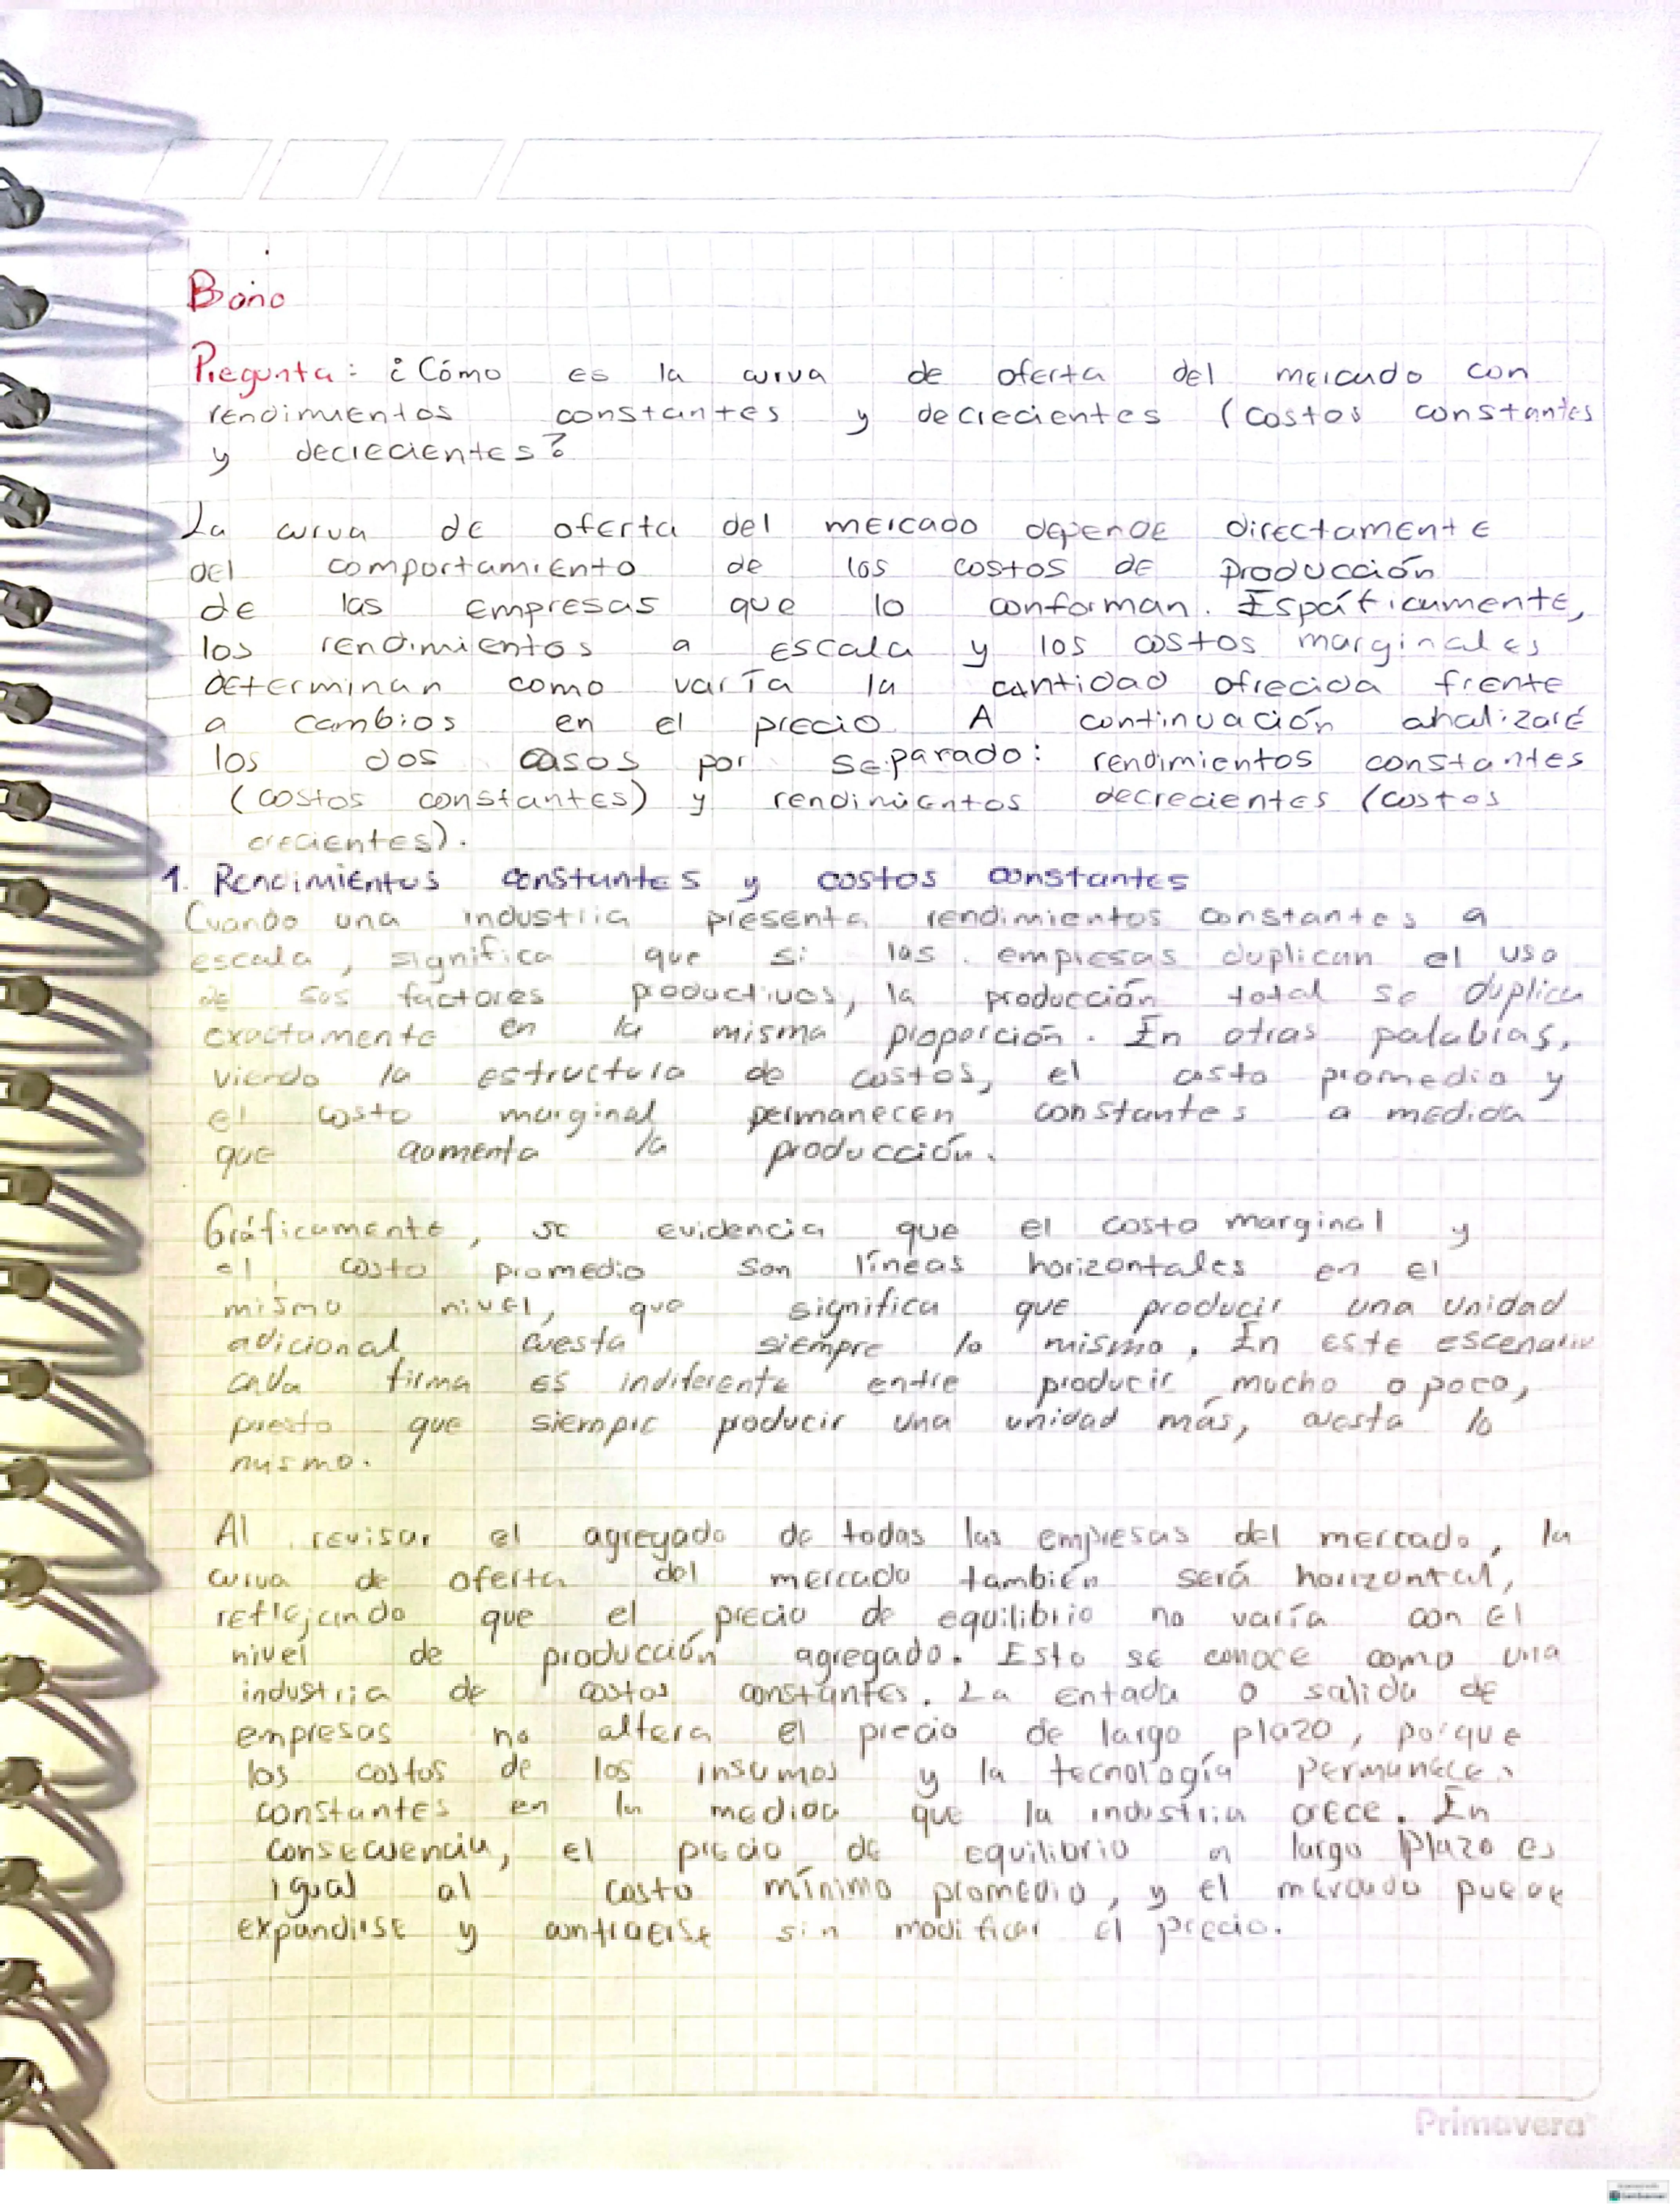 Bono
Pregunta: ¿Cómo es la curva de oferta del mercado con
rendimientos constantes y decrecientes (costos constantes
y decrecientes?
La curva de oferta del mercado depende directamente
del comportamiento de los costos de producción
de las empresas que lo conforman. Espcíficamente,
los rendimientos a escala y los costos marginales
determinan como varía la cantidad ofrecida frente
a cambios en el precio. A continuación analizaré
los dos casos por separado: rendimientos constantes
(costos constantes) y rendimientos decrecientes (costos
crecientes).
1. Rendimientos constantes y costos constantes
Cuando una industria presenta rendimientos constantes a
escala, significa que si las empresas duplican el uso
de sus factores productivos, la producción total se duplica
exactamente en la misma proporción. En otras palabras,
viendo la estructura de costos, el costo promedio y
el costo marginal permanecen constantes a medida
que aumenta la producción.
Gráficamente, se evidencia que el costo marginal y
el costo promedio son líneas horizontales en el
mismo nivel, que significa que producir una unidad
adicional cuesta siempre lo mismo. En este escenario
cada firma es indiferente entre producir mucho o poco,
puesto que siempre producir una unidad más, cuesta lo
mismo.
Al revisar el agregado de todas las empresas del mercado, la
curva de oferta del mercado también será horizontal,
reflejando que el precio de equilibrio no varía con el
nivel de producción agregado. Esto se conoce como una
industria de costos constantes. La entada o salida de
empresas no altera el precio de largo plazo, porque
los costos de los insumos y la tecnología permanecen
constantes en la medida que la industria crece. En
consecuencia, el precio de equilibrio a largo plazo es
igual al costo mínimo promedio, y el mercado puede
expandirse y contraerse sin modificar el precio.
Primavera